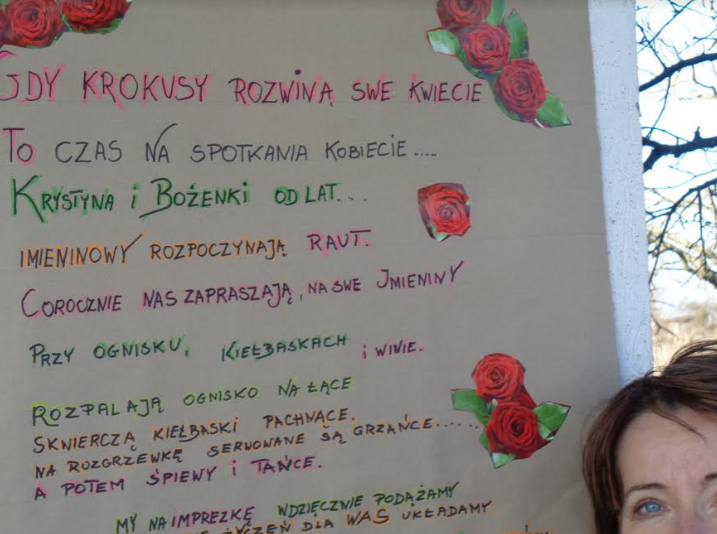 GDY KROKUSY ROZWINĄ SWE KWIECIE
TO CZAS NA SPOTKANIA KOBIECIE....
KRYSTYNA i BOŻENKI OD LAT...
IMIENINOWY ROZPOCZYNAJĄ RAUT.
COROCZNIE NAS ZAPRASZAJĄ, NA SWE IMIENINY
PRZY OGNISKU, KIEŁBASKACH i WINIE.
ROZPALAJĄ OGNISKO NA ŁĄCE
SKWIERCZĄ KIEŁBASKI PACHNĄCE.
NA ROZGRZEWKĘ SERWOWANE SĄ GRZAŃCE......
A POTEM ŚPIEWY i TAŃCE.
MY NA IMPREZKĘ WDZIĘCZNIE PODĄŻAMY
ŻYCZEŃ DLA WAS UKŁADAMY